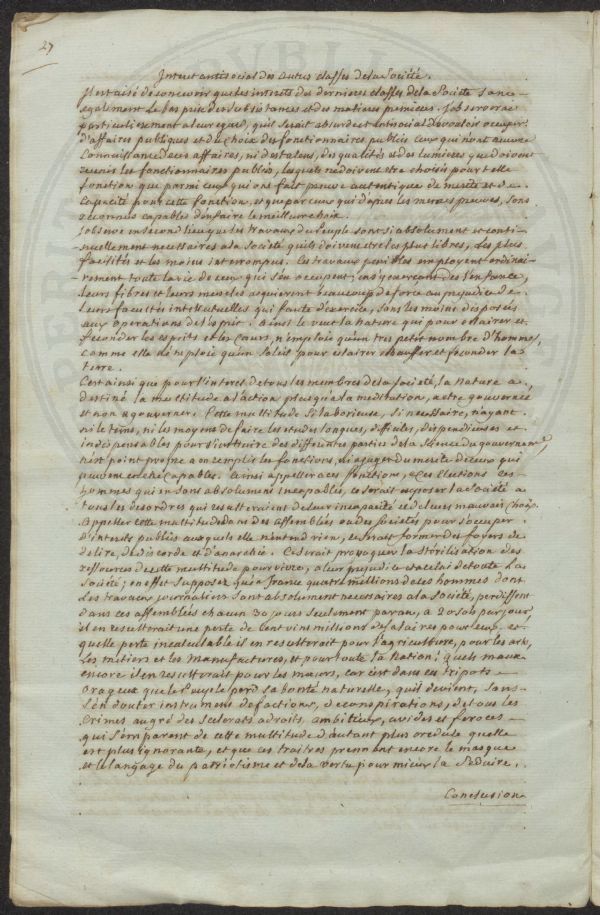 27
Interet antisocial des autres classes de la Société.
Il est aisé de concevoir que les interets des dernieres classes de la Société sans
egalement le bas prix des subsistances et des matieres premieres. J'observerai
particulierement a leur egard, qu'il serait absurde et antisocial de vouloir occuper
d'affaires publiques et du choix des fonctionnaires publics ceux qui n'ont aucune
Connaissance de ces affaires, ni des talens, des qualités et des lumieres que doivent
reunir les fonctionnaires publics, lesquels ne doivent etre choisis pour telle
fonction que parmi ceux qui ont fait preuve autentique de merite et de
Capacité pour cette fonction, et que par ceux qui d'après les memes preuves, sont
reconnus capables d'en faire le meilleur choix.
J'observe en second lieu que les travaux du Peuple sont si absolument et conti-
nuellement necessaires a la Société qu'ils doivent etre les plus libres, les plus
facilités et les moins interrompus. Ces travaux penibles employent ordinai-
rement toute la vie de ceux qui s'en occupent; en s'y exerçant dès l'enfance,
leurs fibres et leurs muscles acquierent beaucoup de force au prejudice de
leurs facultés intellectuelles qui faute d'exercice, sont les moins disposées
aux operations de l'esprit. Ainsi le veut la Nature qui pour eclairer et
feconder les esprits et les cœurs, n'emploie qu'un tres petit nombre d'hommes,
comme elle n'emploie qu'un Soleil pour eclairer echauffer et feconder la
terre.
C'est ainsi que pour l'interet de tous les membres de la Société, la Nature a
destiné la multitude a l'action plus qu'a la meditation, a etre gouvernée
et non a gouverner. Cette multitude si laborieuse, si necessaire, n'ayant
ni le tems, ni les moyens de faire les etudes longues, difficiles, dispendieuses et
indispensables pour s'instruire des differentes parties de la Science du gouvernement,
n'est point propre a en remplir les fonctions, ni a juger du merite de ceux qui
peuvent en etre capables. Ainsi appeller a ces fonctions, a ces Elections des
hommes qui en sont absolument incapables, ce serait exposer la Société a
tous les desordres qui resulteraient de leur incapacité et de leurs mauvais choix.
Appeller cette multitude dans des assemblées ou des societés pour s'occuper
d'interets publics auxquels elle n'entend rien, ce serait former des foyers de
delire, de discorde et d'anarchie. Ce serait provoquer la stérilisation des
ressources de cette multitude pour vivre, a leur prejudice et a celui de toute la
Société; en effet supposez qu'en France quatre millions de ces hommes dont
les travaux journaliers sont absolument necessaires a la société, perdissent
dans ces assemblées chacun 30 jours seulement par an, a 20 sols par jour
il en resulterait une perte de Cent vint millions de salaires pour eux. et
quelle perte incalculable il en resulterait pour l'agriculture, pour les arts,
les metiers et les manufactures, et pour toute la Nation! quels maux
encore il en resulterait pour les mœurs, car c'est dans ces tripots
orageux que le Peuple perd sa bonté naturelle, qu'il devient, sans
s'en douter instrument de factions, de conspirations, de tous les
Crimes au gré des scelerats adroits, ambitieux, avides et feroces
qui s'emparent de cette multitude d'autant plus credule qu'elle
est plus ignorante, et que ces traitres prennent encore le masque
et le langage du patriotisme et de la vertu pour mieux la Seduire.
Conclusion